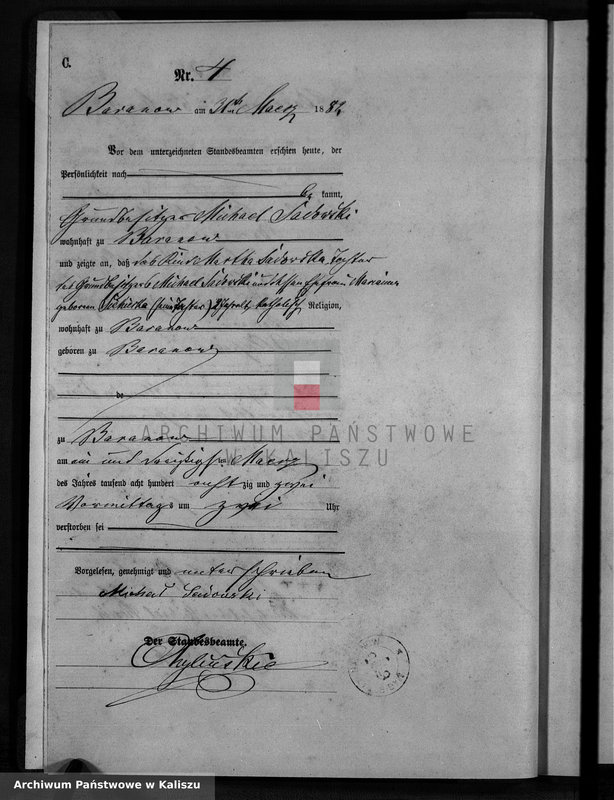 C.
Nr. 4
Baranow am 31ten Maerz 1882
Vor dem unterzeichneten Standesbeamten erschien heute, der
Persönlichkeit nach
be kannt,
Grundbesitzer Michael Sadowski
wohnhaft zu Baranow
und zeigte an, daß das Kind Martha Sadowska Tochter
des Grundbesitzers Michael Sadowski und dessen Ehefrau Marianna
geborene alt, katholisch Religion,
wohnhaft zu Baranow
geboren zu Baranow
de
zu Baranow
am ein und dreißigsten Maerz
des Jahres tausend acht hundert acht zig und zwei
Vormittags um zwei Uhr
verstorben sei
Vorgelesen, genehmigt und unterschrieben
Michael Sadowski
Der Standesbeamte.
ARCHIWUM PAŃSTWOWE
W KALISZU
Archiwum Państwowe w Kaliszu